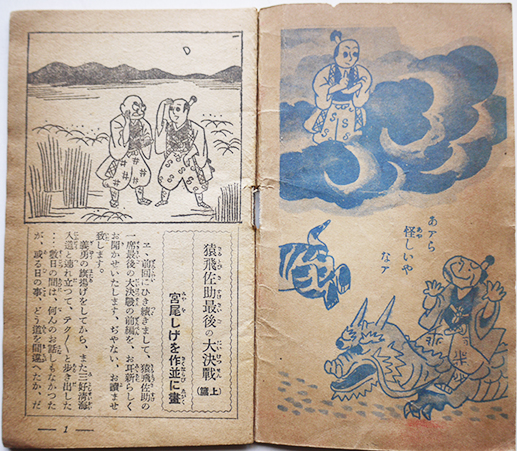 あァら
怪しいや
なァ
猿飛佐助最後の大決戰
(上篇)
宮尾しげを作並に畫
エ、前回にひき續きまして、猿飛佐助の
一席最後の大決戰の前編を、お耳新らしく
お聞かせいたします、ぢやない、お讀ませ
致します。
義勇の旗揚げをしてから、また三好淸海
入道と連れ立つて、テク〳〵と歩き出した
…數日の間は、何んのお話しもなかつた
が、或る日の事、どう道を間違へたか、だ
1